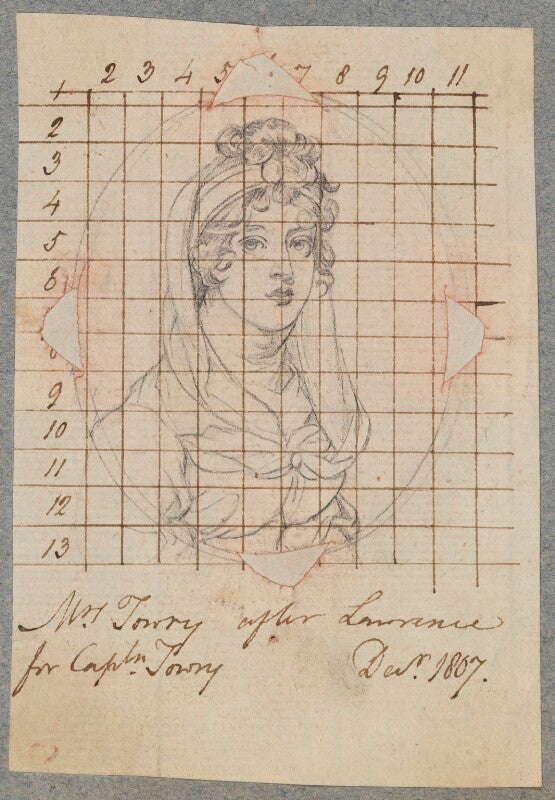 2 3 4 5 7 8 9 10 11
1
2
3
4
5
6
8
9
10
11
12
13
Mrs Towry after Lawrence
for Captn. Towry Decr. 1807.